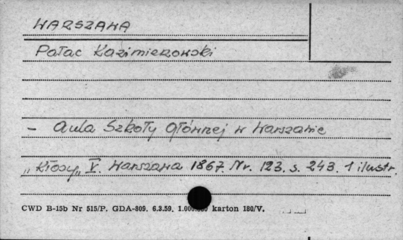 WARSZAWA
Pałac Kazimierowski
- Aula Szkoły Głównej w Warszawie
„Kłosy" V. Warszawa 1867. Nr. 123. s. 243. 1 ilustr.
CWD B-15b Nr 515/P. GDA-805. 6.3.59. karton 180/V.